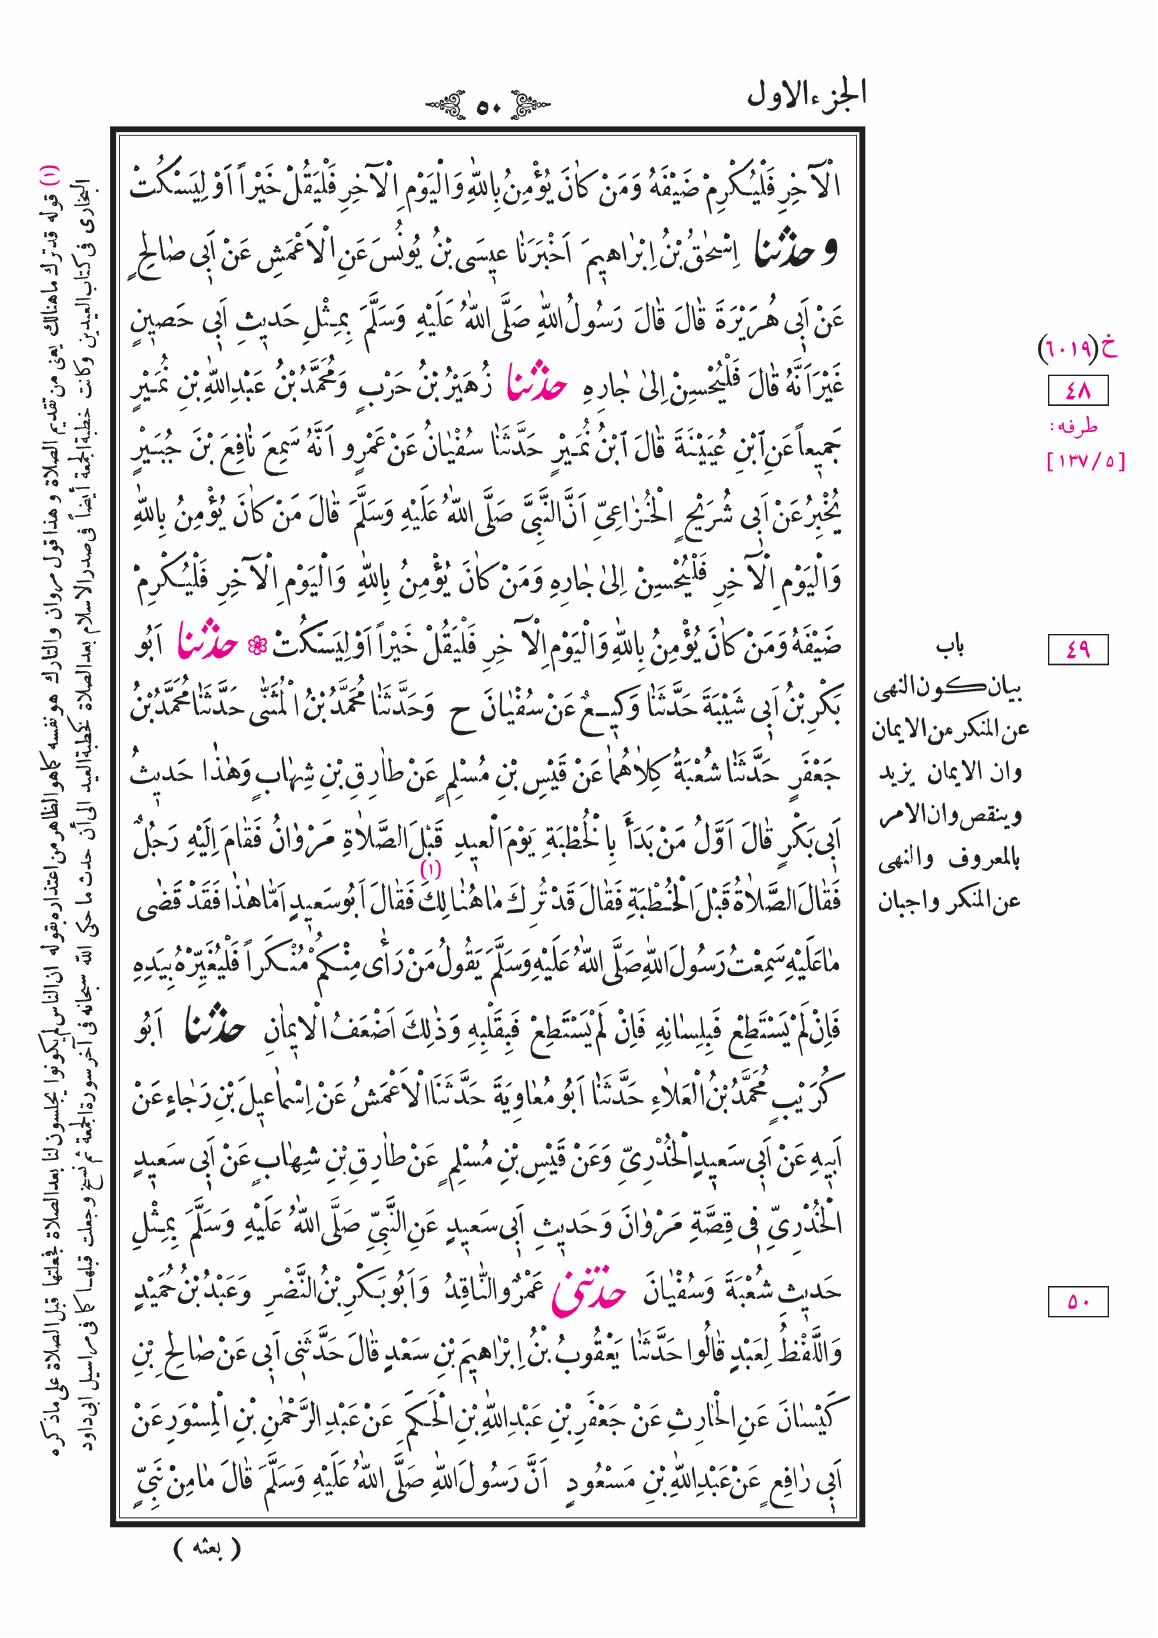 الجزء الاول
٥٠
الْآخِرِ فَلْيُكْرِمْ ضَيْفَهُ وَمَنْ كَانَ يُؤْمِنُ بِاللهِ وَالْيَوْمِ الْآخِرِ فَلْيَقُلْ خَيْراً اَوْ لِيَسْكُتْ
و حدثنا اِسْحٰقُ بْنُ اِبْرَاهِيمَ اَخْبَرَنَا عِيسَى بْنُ يُونُسَ عَنِ الْاَعْمَشِ عَنْ اَبِى صَالِحٍ
عَنْ اَبِى هُرَيْرَةَ قَالَ قَالَ رَسُولُ اللهِ صَلَّى اللهُ عَلَيْهِ وَسَلَّمَ بِمِثْلِ حَدِيثِ اَبِى حَصِينٍ
غَيْرَ اَنَّهُ قَالَ فَلْيُحْسِنْ اِلىٰ جَارِهِ حدثنا زُهَيْرُ بْنُ حَرْبٍ وَمُحَمَّدُ بْنُ عَبْدِ اللهِ بْنِ نُمَيْرٍ
جَمِيعاً عَنِ ابْنِ عُيَيْنَةَ قَالَ ابْنُ نُمَيْرٍ حَدَّثَنَا سُفْيَانُ عَنْ عَمْرٍو اَنَّهُ سَمِعَ نَافِعَ بْنَ جُبَيْرٍ
يُخْبِرُ عَنْ اَبِى شُرَيْحٍ الْخُزَاعِىِّ اَنَّ النَّبِىَّ صَلَّى اللهُ عَلَيْهِ وَسَلَّمَ قَالَ مَنْ كَانَ يُؤْمِنُ بِاللهِ
وَالْيَوْمِ الْآخِرِ فَلْيُحْسِنْ اِلىٰ جَارِهِ وَمَنْ كَانَ يُؤْمِنُ بِاللهِ وَالْيَوْمِ الْآخِرِ فَلْيُكْرِمْ
ضَيْفَهُ وَمَنْ كَانَ يُؤْمِنُ بِاللهِ وَالْيَوْمِ الْآخِرِ فَلْيَقُلْ خَيْراً اَوْ لِيَسْكُتْ حدثنا اَبُو
بَكْرِ بْنُ اَبِى شَيْبَةَ حَدَّثَنَا وَكِيعٌ عَنْ سُفْيَانَ ح وَحَدَّثَنَا مُحَمَّدُ بْنُ الْمُثَنَّى حَدَّثَنَا مُحَمَّدُ بْنُ
جَعْفَرٍ حَدَّثَنَا شُعْبَةُ كِلَاهُمَا عَنْ قَيْسِ بْنِ مُسْلِمٍ عَنْ طَارِقِ بْنِ شِهَابٍ وَهٰذَا حَدِيثُ
اَبِى بَكْرٍ قَالَ اَوَّلُ مَنْ بَدَأَ بِالْخُطْبَةِ يَوْمَ الْعِيدِ قَبْلَ الصَّلَاةِ مَرْوَانُ فَقَامَ اِلَيْهِ رَجُلٌ
فَقَالَ الصَّلَاةُ قَبْلَ الْخُطْبَةِ فَقَالَ قَدْ تُرِكَ مَا هُنَالِكَ (١) فَقَالَ اَبُو سَعِيدٍ اَمَّا هٰذَا فَقَدْ قَضٰى
مَا عَلَيْهِ سَمِعْتُ رَسُولَ اللهِ صَلَّى اللهُ عَلَيْهِ وَسَلَّمَ يَقُولُ مَنْ رَأٰى مِنْكُمْ مُنْكَراً فَلْيُغَيِّرْهُ بِيَدِهِ
فَاِنْ لَمْ يَسْتَطِعْ فَبِلِسَانِهِ فَاِنْ لَمْ يَسْتَطِعْ فَبِقَلْبِهِ وَذٰلِكَ اَضْعَفُ الْايمَانِ حدثنا اَبُو
كُرَيْبٍ مُحَمَّدُ بْنُ الْعَلَاءِ حَدَّثَنَا اَبُو مُعَاوِيَةَ حَدَّثَنَا الْاَعْمَشُ عَنْ اِسْمَاعِيلَ بْنِ رَجَاءٍ عَنْ
اَبِيهِ عَنْ اَبِى سَعِيدٍ الْخُدْرِىِّ وَعَنْ قَيْسِ بْنِ مُسْلِمٍ عَنْ طَارِقِ بْنِ شِهَابٍ عَنْ اَبِى سَعِيدٍ
الْخُدْرِىِّ فِى قِصَّةِ مَرْوَانَ وَحَدِيثِ اَبِى سَعِيدٍ عَنِ النَّبِىِّ صَلَّى اللهُ عَلَيْهِ وَسَلَّمَ بِمِثْلِ
حَدِيثِ شُعْبَةَ وَسُفْيَانَ حدثنى عَمْرٌو النَّاقِدُ وَاَبُو بَكْرِ بْنُ النَّضْرِ وَعَبْدُ بْنُ حُمَيْدٍ
وَاللَّفْظُ لِعَبْدٍ قَالُوا حَدَّثَنَا يَعْقُوبُ بْنُ اِبْرَاهِيمَ بْنِ سَعْدٍ قَالَ حَدَّثَنِى اَبِى عَنْ صَالِحِ بْنِ
كَيْسَانَ عَنِ الْحَارِثِ عَنْ جَعْفَرِ بْنِ عَبْدِ اللهِ بْنِ الْحَكَمِ عَنْ عَبْدِ الرَّحْمٰنِ بْنِ الْمِسْوَرِ عَنْ
اَبِى رَافِعٍ عَنْ عَبْدِ اللهِ بْنِ مَسْعُودٍ اَنَّ رَسُولَ اللهِ صَلَّى اللهُ عَلَيْهِ وَسَلَّمَ قَالَ مَا مِنْ نَبِىٍّ
( بعثه )
خ (٦٠١٩)
٤٨
طرفه:
[١٣٧/٥]
٤٩
باب
بيان كون النهى
عن المنكر من الايمان
وان الايمان يزيد
وينقص وان الامر
بالمعروف والنهى
عن المنكر واجبان
٥٠
(١) قوله قد ترك ما هنالك يعنى من تقديم الصلاة وهذا قول مروان والتارك هو نفسه كما هو الظاهر من اعتذاره بقوله ان الناس لم يكونوا يجلسون لنا بعد الصلاة فجعلتها قبل الصلاة على ما ذكره
البخارى فى كتاب العيدين وكانت خطبة الجمعة أيضاً فى صدر الاسلام بعد الصلاة كخطبة العيد الى أن حدث ما حكى الله سبحانه فى آخر سورة الجمعة ثم نسخ وجعلت قبلها كما فى مراسيل ابى داود